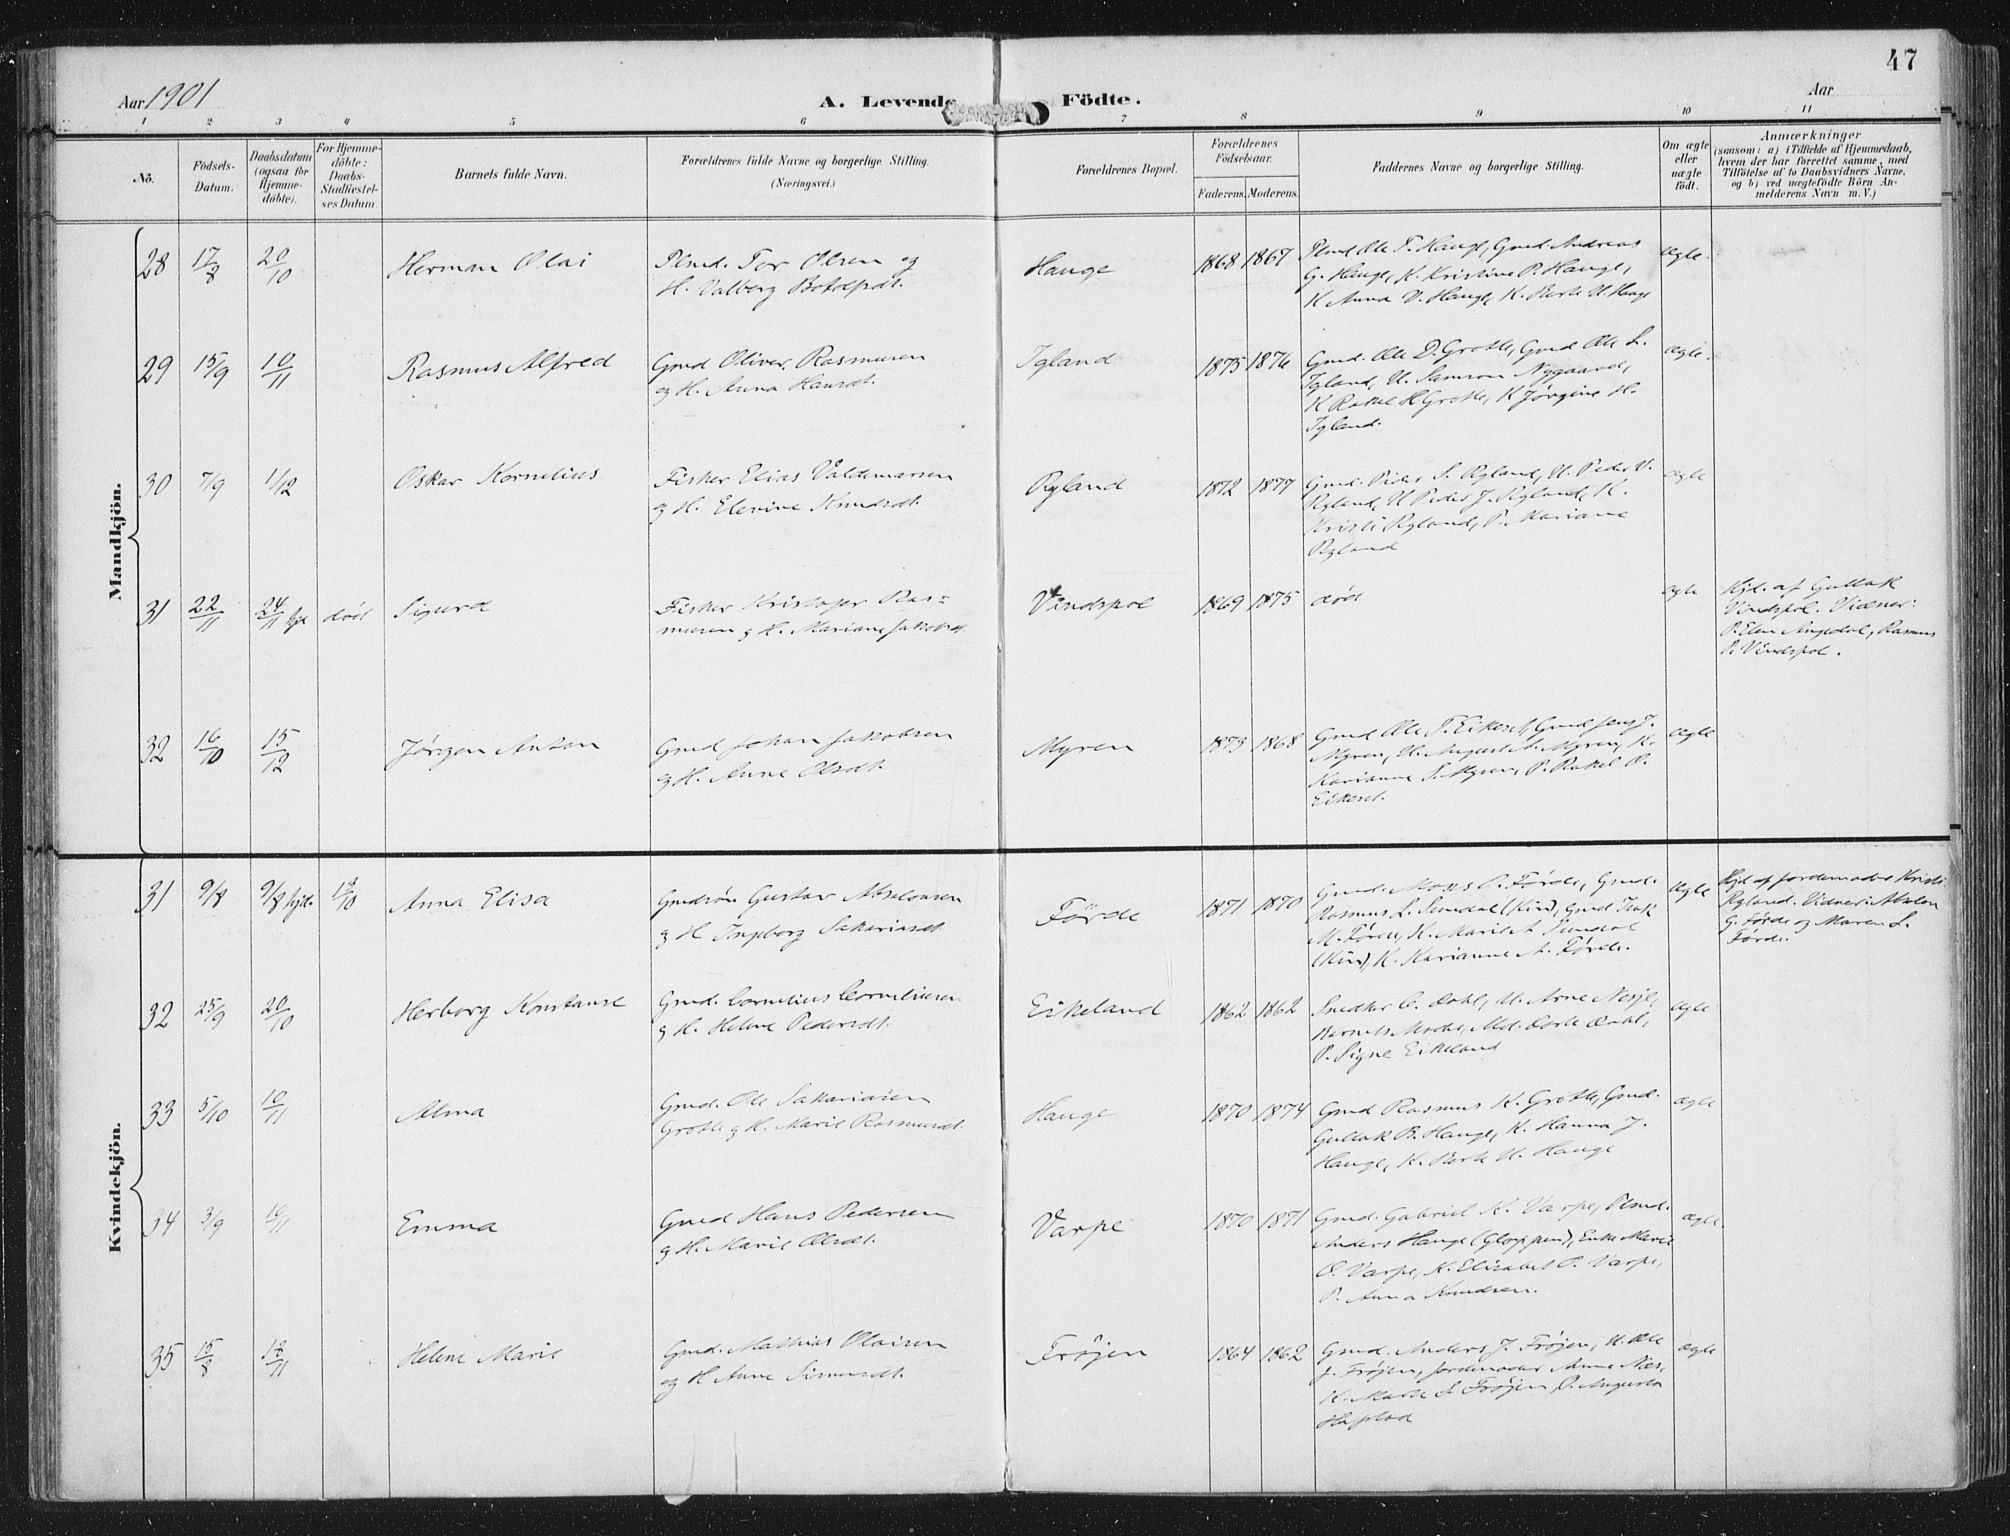 47
Aar 1901
A. Levende Födte.
Aar
1 2 3 4 5 6 7 8 9 10 11
No.
Födsels-Datum.
Daabsdatum (ogsaa for Hjemme-döbte).
For Hjemme-döbte: Daabs-Stadfæstel-ses Datum.
Barnets fulde Navn.
Forældrenes fulde Navne og borgerlige Stilling.
(Næringsvei.)
Forældrenes Bopæl.
Forældrenes Födselsaar.
Faderens. Moderens.
Faddernes Navne og borgerlige Stilling.
Om ægte eller uægte födt.
Anmærkninger
(saasom: a) i Tilfælde af Hjemmedaab,
hvem der har forrettet samme, med
Tilföielse af to Daabsvidners Navne,
og b) ved uægtefödte Börn An-
melderens Navn m. V.)
Mandkjön.
28 17/8 20/10 Herman Olai
Plmd. Tor Olsen og
H. Valberg Botolfsdt.
Hauge 1868 1867
Plmd Ole T. Hauge, Gmd Andreas
G. Hauge, K. Kristine P. Hauge,
K Anna V. Hauge, K. Berte U. Hauge
ægte.
29 15/9 10/11 Rasmus Alfred
Gmd Oliver Rasmussen
og H. Anna Hansdt.
Igland 1875 1876
Gmd. Ole D. Grotle, Gmd Ole L.
Igland, U. Samson Nygaard,
K Rakel H Grotle, K Jørgine H.
Igland.
ægte.
30 7/9 1/12 Oskar Kornelius
Fisker Elias Valdemarsen
og H. Elevine Knudsdt.
Ryland 1872 1877
Gmd. Peder S. Ryland, U. Peder V.
Ryland, U Peder J. Ryland, K.
Kristi Ryland, P. Mariane
Ryland
ægte
31 22/11 24/11 hjd død Sigurd
Fisker Kristofer Ras=
mussen og H. Mariane Jakobsdt.
Vindspol 1869 1875 død
ægte
Hjd. af Gullak
Vindspol. Vidner:
P. Elen Angedal, Rasmus
P. Vindspol.
32 16/10 15/12 Jørgen Anton
Gmd Johan Jakobsen
og H. Anne Olsdt.
Myren 1873 1868
Gmd Ole T. Eikeset, Gmd Jens J.
Myren, U. August S. Myren, K.
Karianne S. Myren, P. Rakel O.
Eikeset.
ægte
Kvindekjön.
31 9/8 9/8 hjd. 13/10 Anna Elisa
Gmdsøn Gustav Abselonsen
og H Ingeborg Sakariasdt.
Førde 1871 1870
Gmd. Mons A. Førde, Gmd.
Rasmus L. Sundal (Kin), Gmd Isak
M. Førde, K. Marie A. Sundal
(Kin), K. Karianne A. Førde.
ægte
Hjd. af Jordemoder Kristi
Ryland. Vidner: Abselon
G. Førde og Maren L.
Førde.
32 25/9 20/10 Herborg Konstanse
Gmd. Cornelius Corneliusen
og H. Helene Pedersdt.
Eikeland 1862 1862
Snedker C. Dahl, U. Arne Nesje,
Barnets Moder, Md. Dorte Dahl,
P. Signe Eikeland
ægte
33 5/10 10/11 Alma
Gmd. Ole Sakariasen
Grotle og H. Marie Rasmusdt.
Hauge 1870 1874
Gmd Rasmus K. Grotle, Gmd.
Gullak B. Hauge, K. Hanna J.
Hauge, K. Berte U. Hauge
ægte
34 3/9 10/11 Emma
Gmd Hans Pedersen
og H. Marie Olsdt.
Varpe 1870 1871
Gmd. Gabriel K. Varpe, Plmd.
Anders Hauge (Gloppen), Enke Marie
O. Varpe, K. Elisabet P. Varpe,
P. Anna Knudsen.
ægte
35 15/8 18/11 Helene Marie
Gmd. Mathias Olaisen
og H Anne Simonsdt.
Frøjen 1864 1862
Gmd. Anders J. Frøjen, U. Ole
J. Frøjen, Jordemoder Anne Næs,
K. Marte S. Frøjen, P. Augusta
ægte